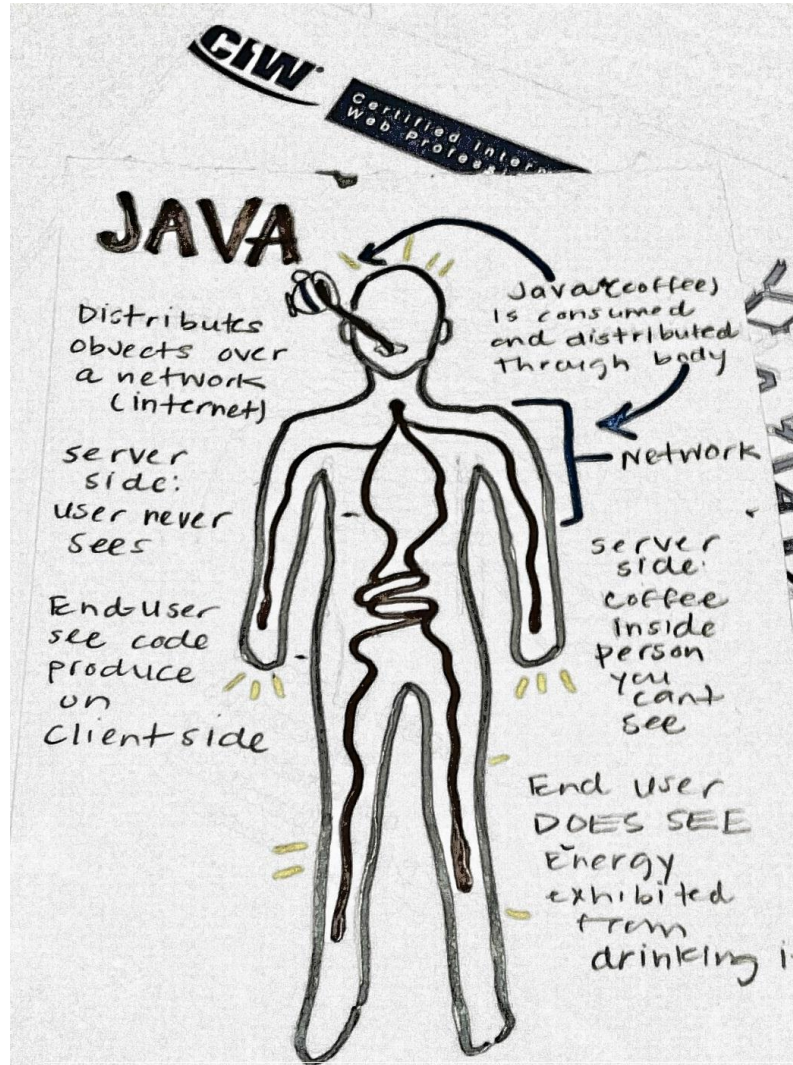 CIW
Certified Intern
Web Profess
JAVA
Distributes
objects over
a network
(internet)
server
side:
user never
sees
End-user
see code
produce
on
client side
Java (coffee)
is consumed
and distributed
through body
Network
server
side:
coffee
inside
person
you
cant
see
End user
DOES SEE
Energy
exhibited
from
drinking i